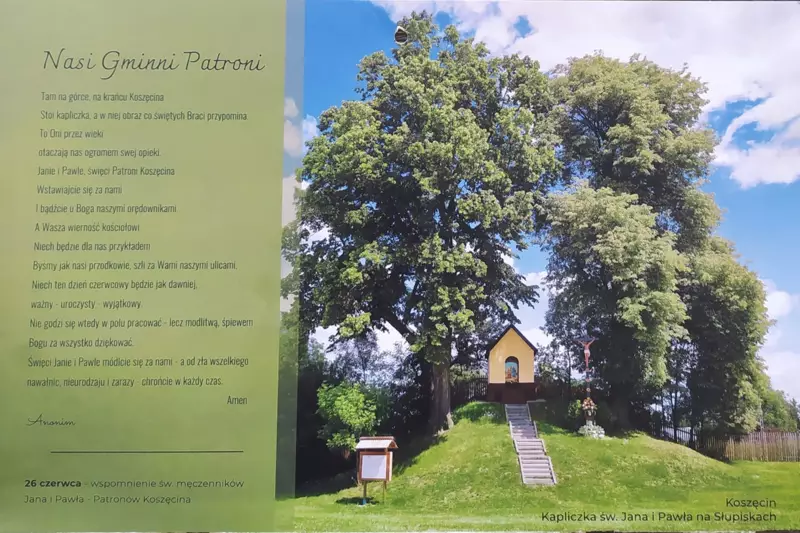 Nasi Gminni Patroni
Tam na górce, na krańcu Koszęcina
Stoi kapliczka, a w niej obraz co świętych Braci przypomina.
To Oni przez wieki
otaczają nas ogromem swej opieki.
Janie i Pawle, święci Patroni Koszęcina
Wstawiajcie się za nami
I bądźcie u Boga naszymi orędownikami.
A Wasza wierność kościołowi
Niech będzie dla nas przykładem
Byśmy jak nasi przodkowie, szli za Wami naszymi ulicami.
Niech ten dzień czerwcowy będzie jak dawniej,
ważny - uroczysty - wyjątkowy.
Nie godzi się wtedy w polu pracować - lecz modlitwą, śpiewem
Bogu za wszystko dziękować.
Święci Janie i Pawle módlcie się za nami - a od zła wszelkiego
nawałnic, nieurodzaju i zarazy - chrońcie w każdy czas.
Amen
Anonim
26 czerwca - wspomnienie św. męczenników
Jana i Pawła - Patronów Koszęcina
Koszęcin
Kapliczka św. Jana i Pawła na Słupiskach